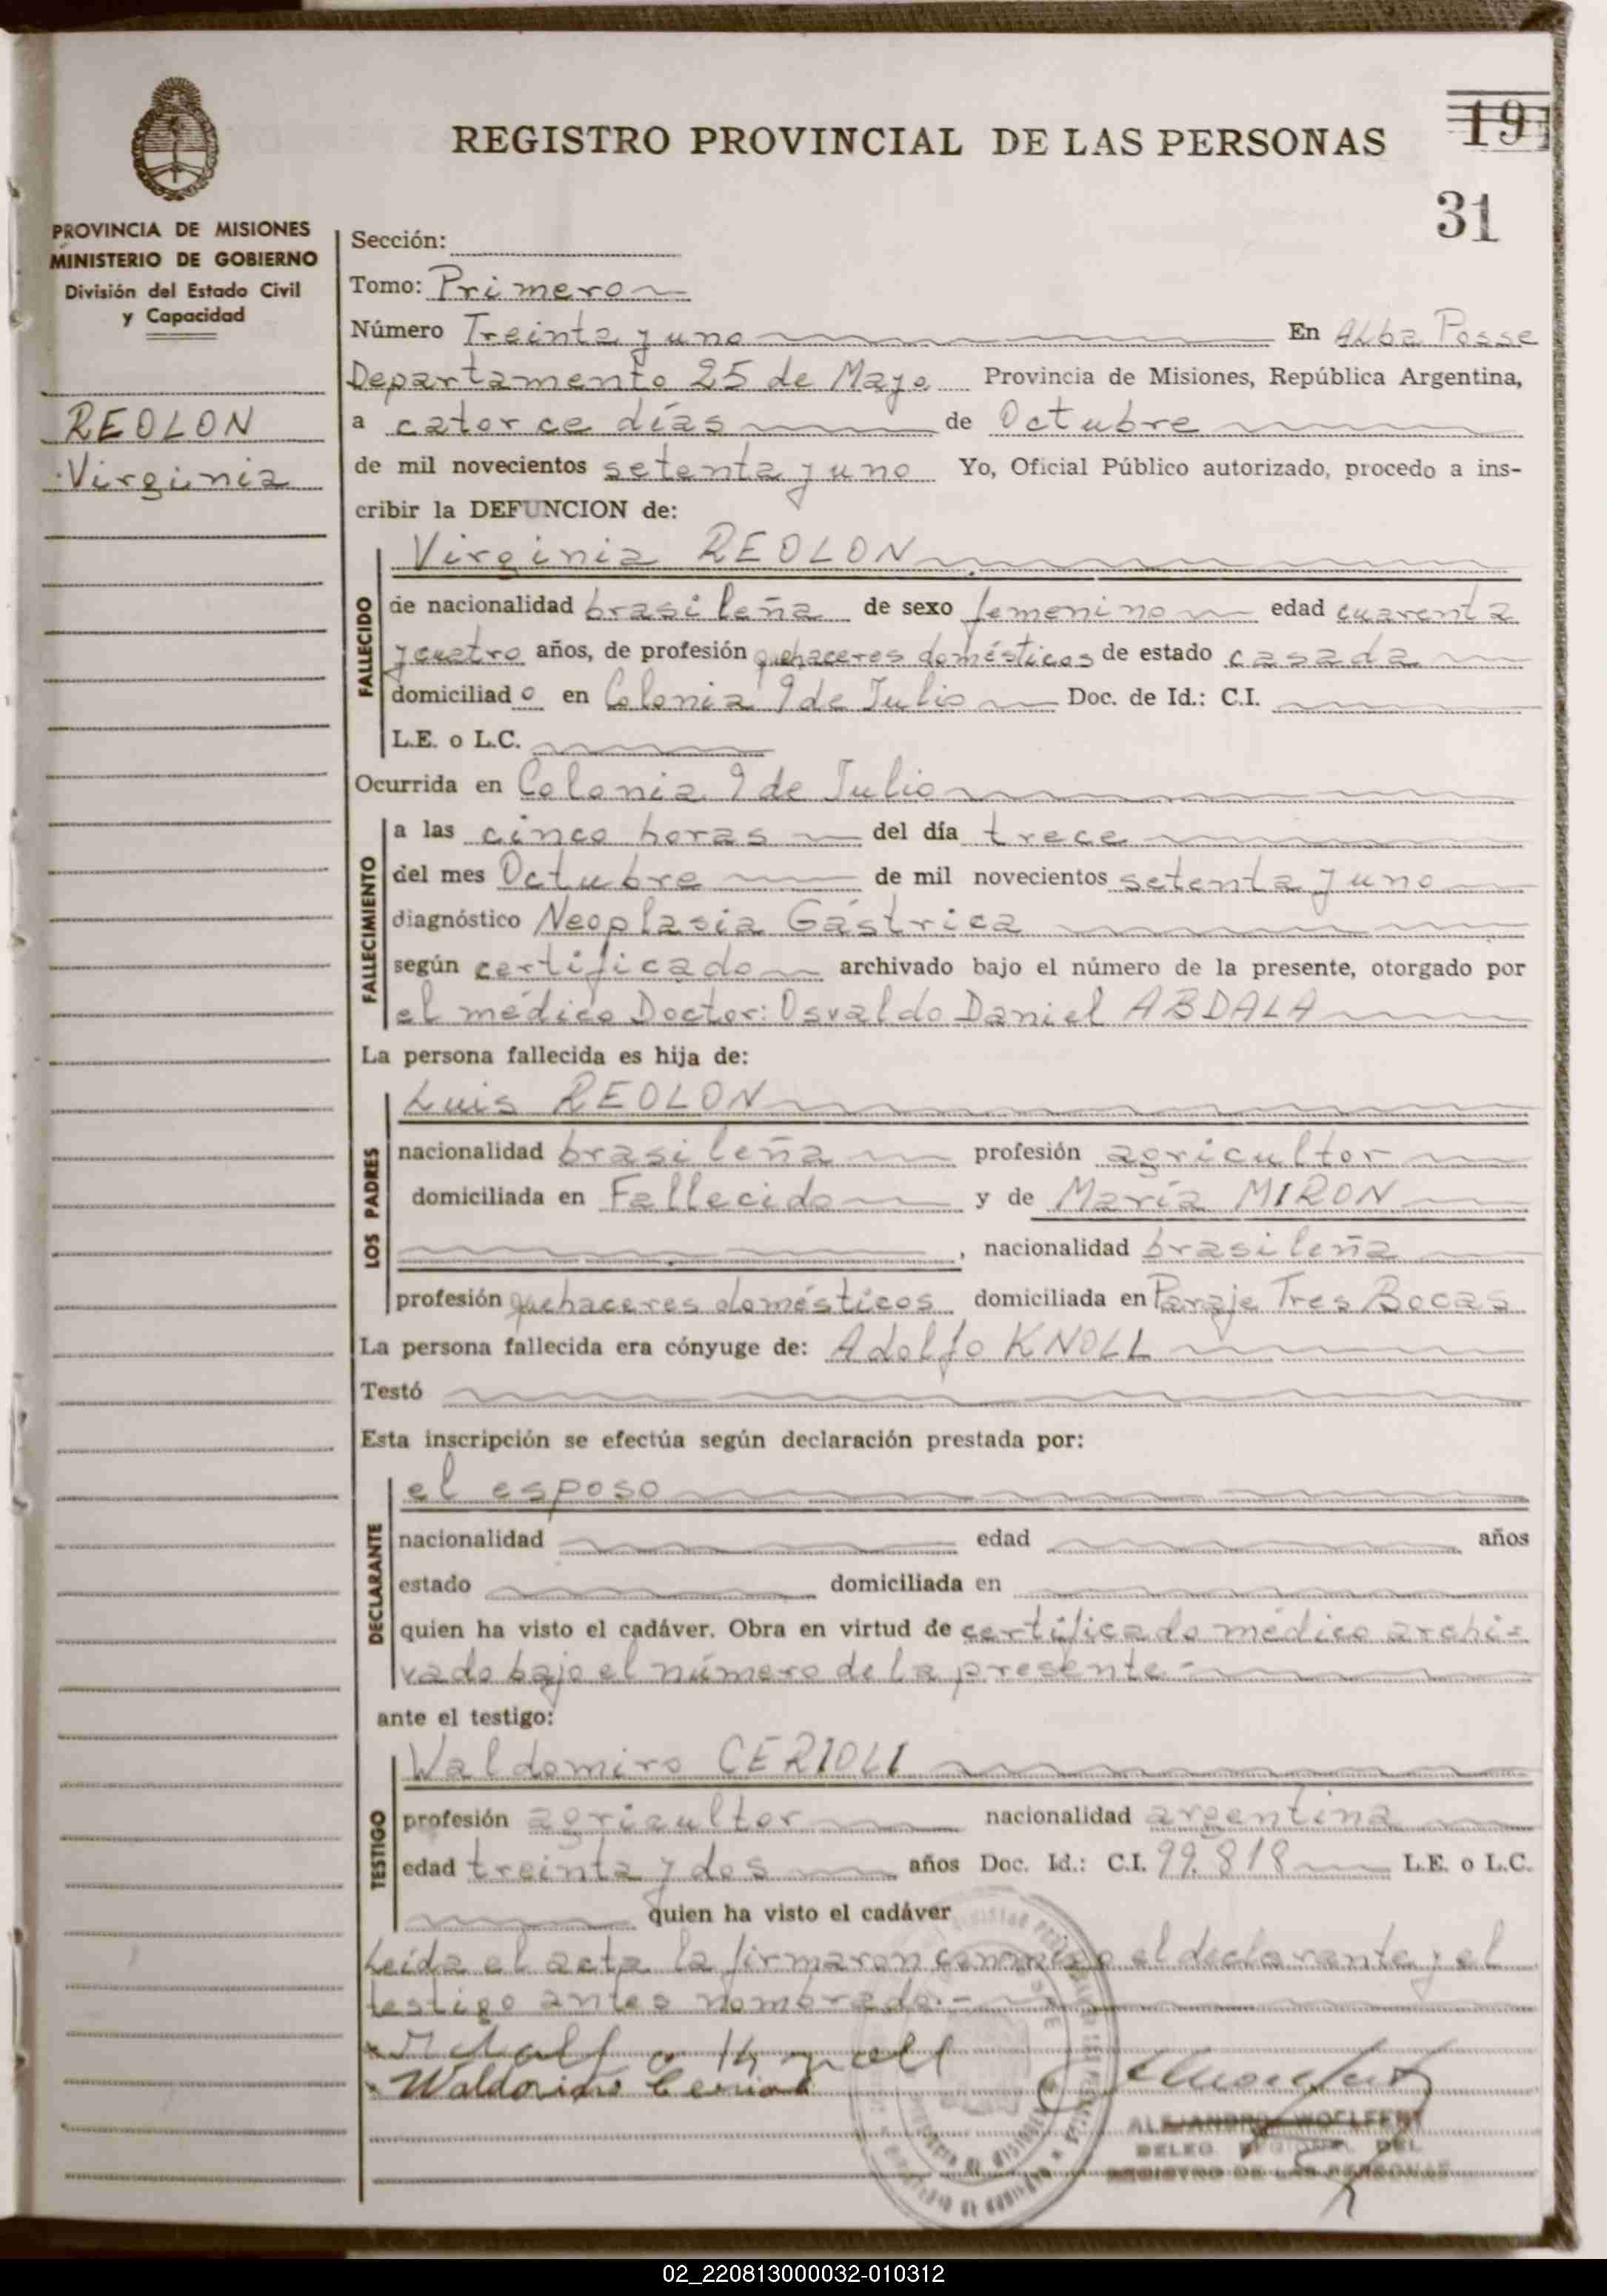 REGISTRO PROVINCIAL DE LAS PERSONAS
19
31
PROVINCIA DE MISIONES
MINISTERIO DE GOBIERNO
División del Estado Civil
y Capacidad
REOLON
Virginia
Sección:
Tomo: Primero
Número Treinta y uno En Alba Posse
Departamento 25 de Mayo Provincia de Misiones, República Argentina,
a catorce días de Octubre
de mil novecientos setenta y uno Yo, Oficial Público autorizado, procedo a ins-
cribir la DEFUNCION de:
Virginia REOLON
FALLECIDO
de nacionalidad brasileña de sexo femenino edad cuarenta
y cuatro años, de profesión quehaceres domésticos de estado casada
domiciliado en Colonia 9 de Julio Doc. de Id.: C.I.
L.E. o L.C.
Ocurrida en Colonia 9 de Julio
FALLECIMIENTO
a las cinco horas del día trece
del mes Octubre de mil novecientos setenta y uno
diagnóstico Neoplasia Gástrica
según certificado archivado bajo el número de la presente, otorgado por
el médico Doctor: Osvaldo Daniel ABDALA
La persona fallecida es hija de:
LOS PADRES
Luis REOLON
nacionalidad brasileña profesión agricultor
domiciliada en Fallecido y de María MIRON
, nacionalidad brasileña
profesión quehaceres domésticos domiciliada en Paraje Tres Bocas
La persona fallecida era cónyuge de: Adolfo KNOLL
Testó
Esta inscripción se efectúa según declaración prestada por:
DECLARANTE
el esposo
nacionalidad edad años
estado domiciliada en
quien ha visto el cadáver. Obra en virtud de certificado médico archi=
vado bajo el número de la presente.-
ante el testigo:
TESTIGO
Waldomiro CERIOLI
profesión agricultor nacionalidad argentina
edad treinta y dos años Doc. Id.: C.I. 99.818 L.E. o L.C.
quien ha visto el cadáver
Leída el acta la firmaron conmigo el declarante y el
testigo antes nombrado.-
Adolfo Knoll
Waldomiro Cerioli
ALEJANDRO WOLFFERT
DELEG. REGIONAL DEL
REGISTRO DE LAS PERSONAS
02_220813000032-010312